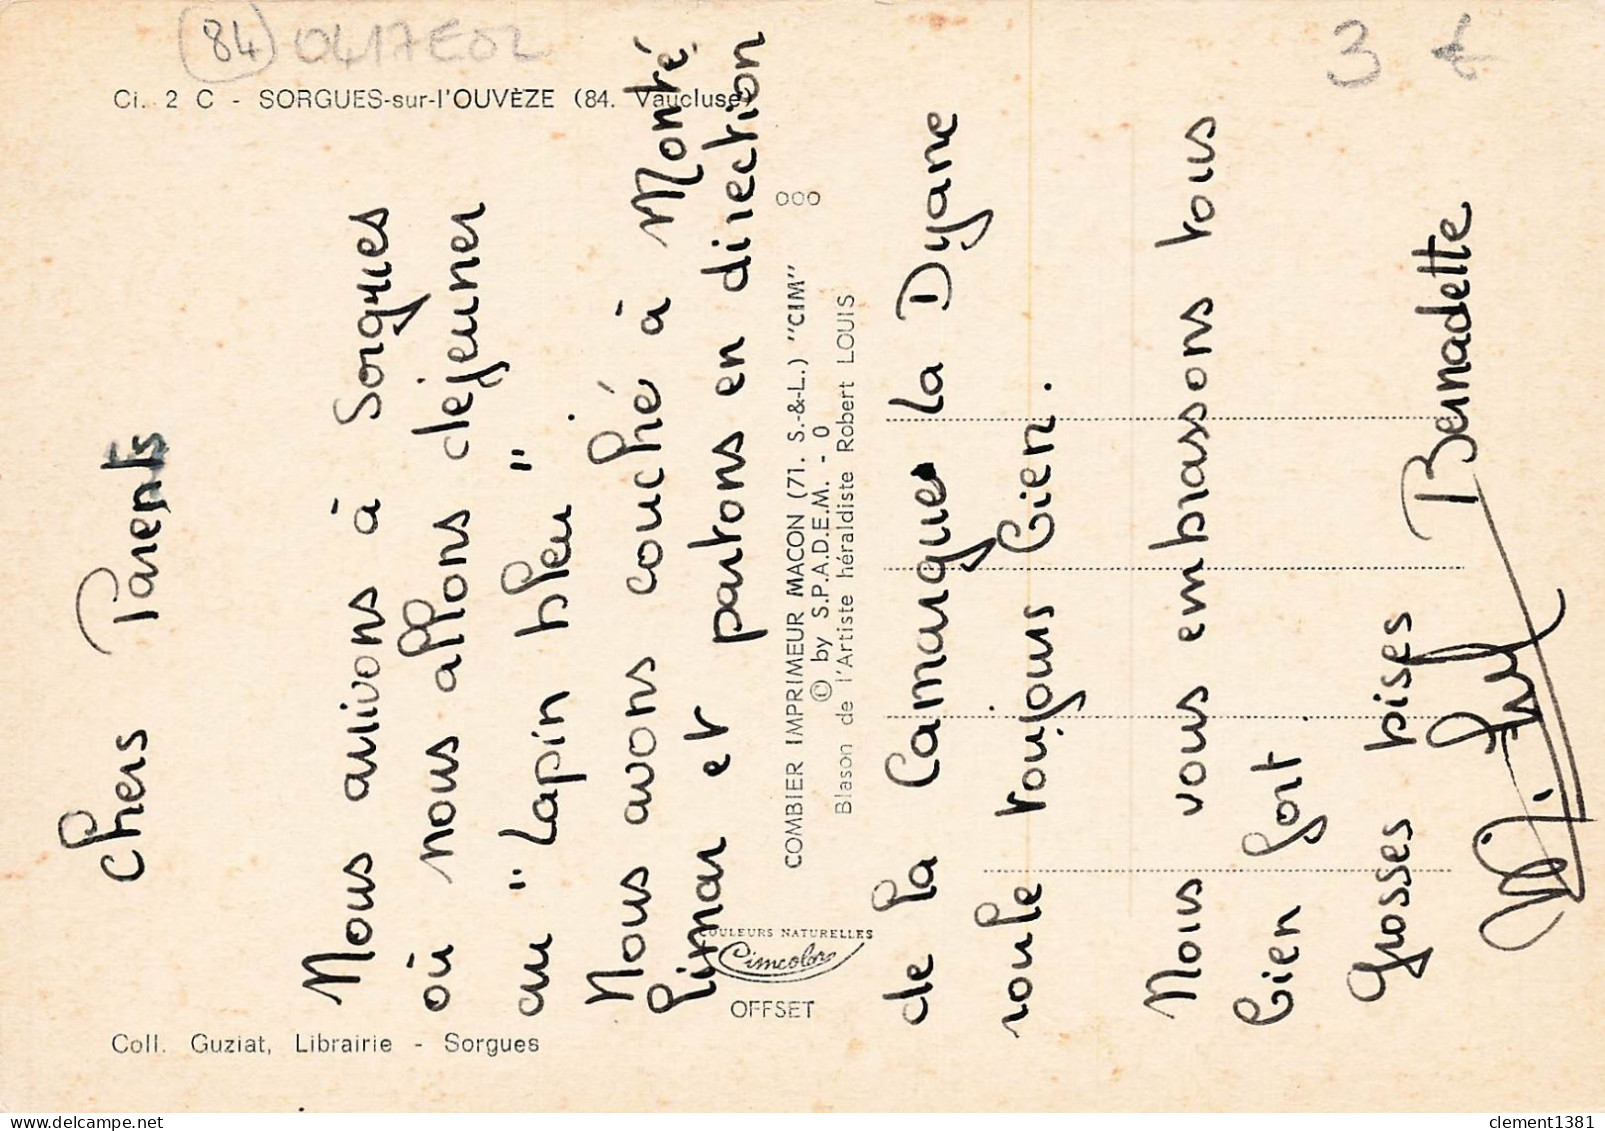 84 0417E02
3 €
Ci. 2 C - SORGUES-sur-l'OUVÈZE (84. Vaucluse)
Chers Parents
Nous arrivons à Sorgues
où nous allons déjeuner
au "Lapin bleu".
Nous avons couché à Monté
limar et partons en direction
de la Camargue. La Dyane
roule toujours bien.
Nous vous embrassons tous
bien fort
Grosses bises Bernadette
COMBIER IMPRIMEUR MACON (71. S.-&-L.) "CIM"
© by S.P.A.D.E.M. - 0
Blason de l'Artiste héraldiste Robert LOUIS
000
COULEURS NATURELLES
Cimcolor
OFFSET
Coll. Guziat, Librairie - Sorgues
clement1381